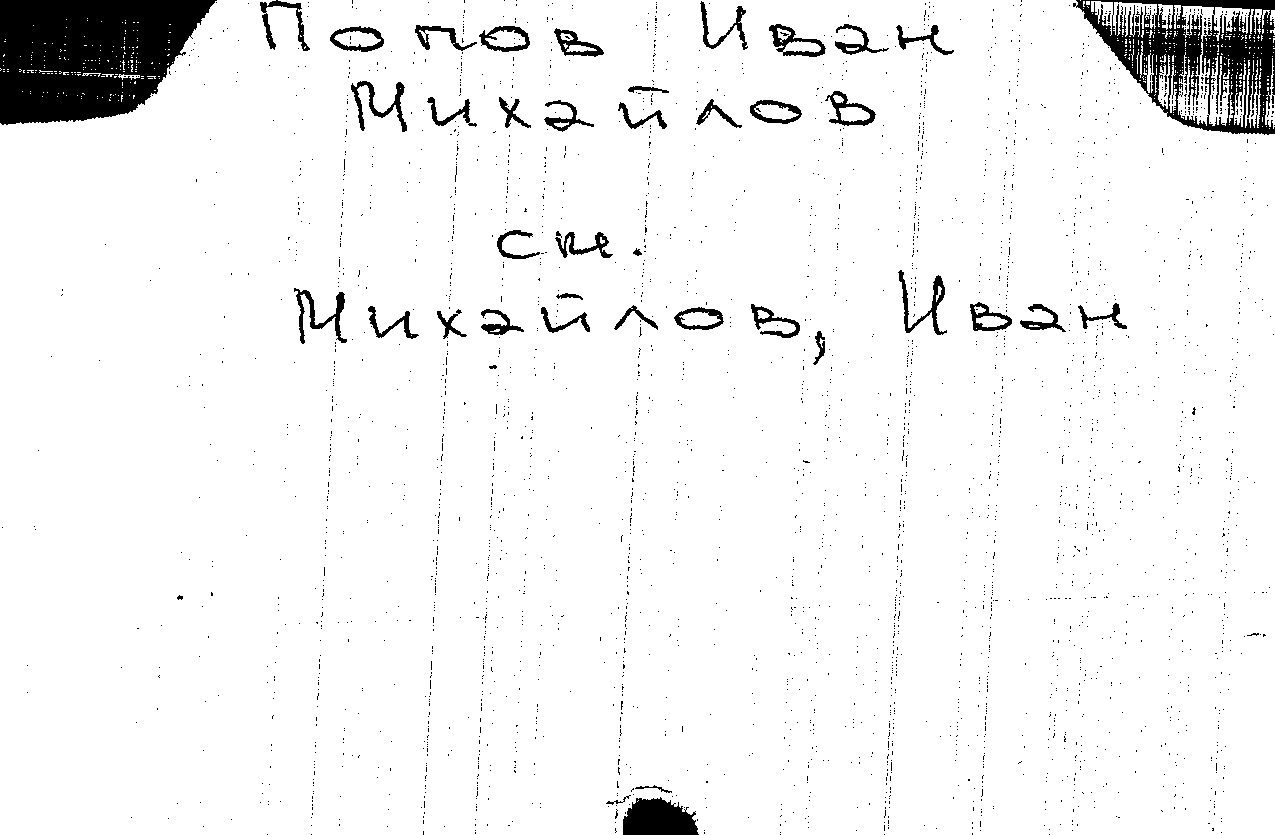 Попов Иван
Михайлов
см.
Михайлов, Иван